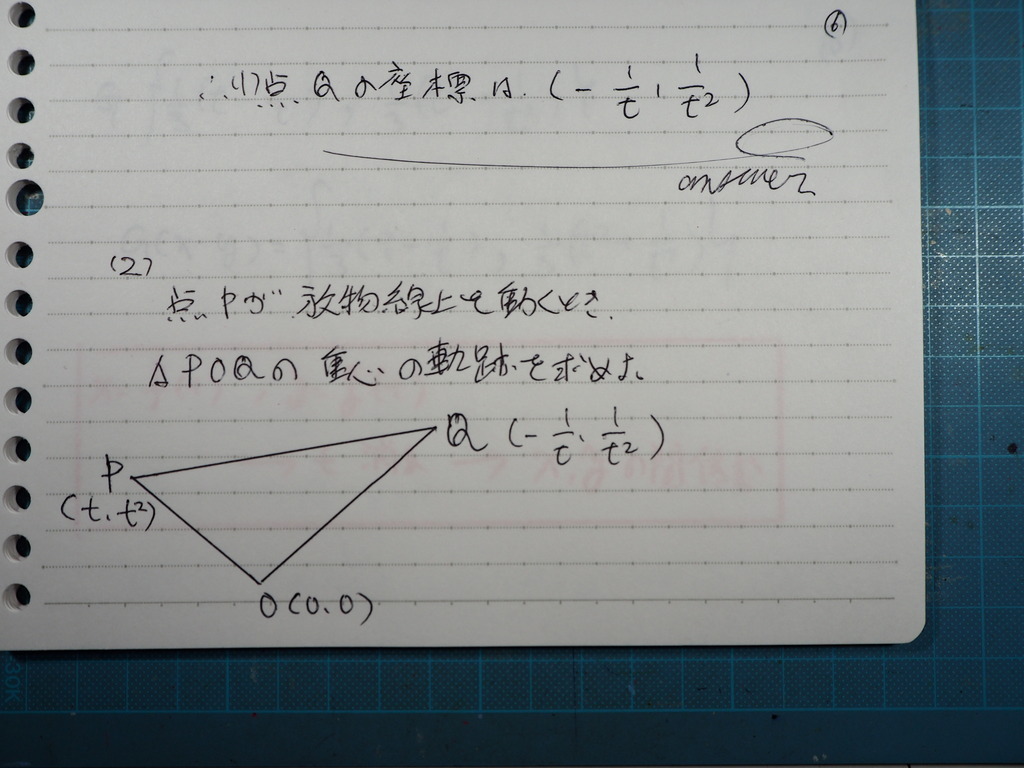 ⑥
∴ 点Qの座標は (- 1/t, 1/t²)
answer
(2)
点Pが放物線上を動くとき、
△POQの重心の軌跡を求めよ。
Q (- 1/t, 1/t²)
P
(t, t²)
O (0, 0)